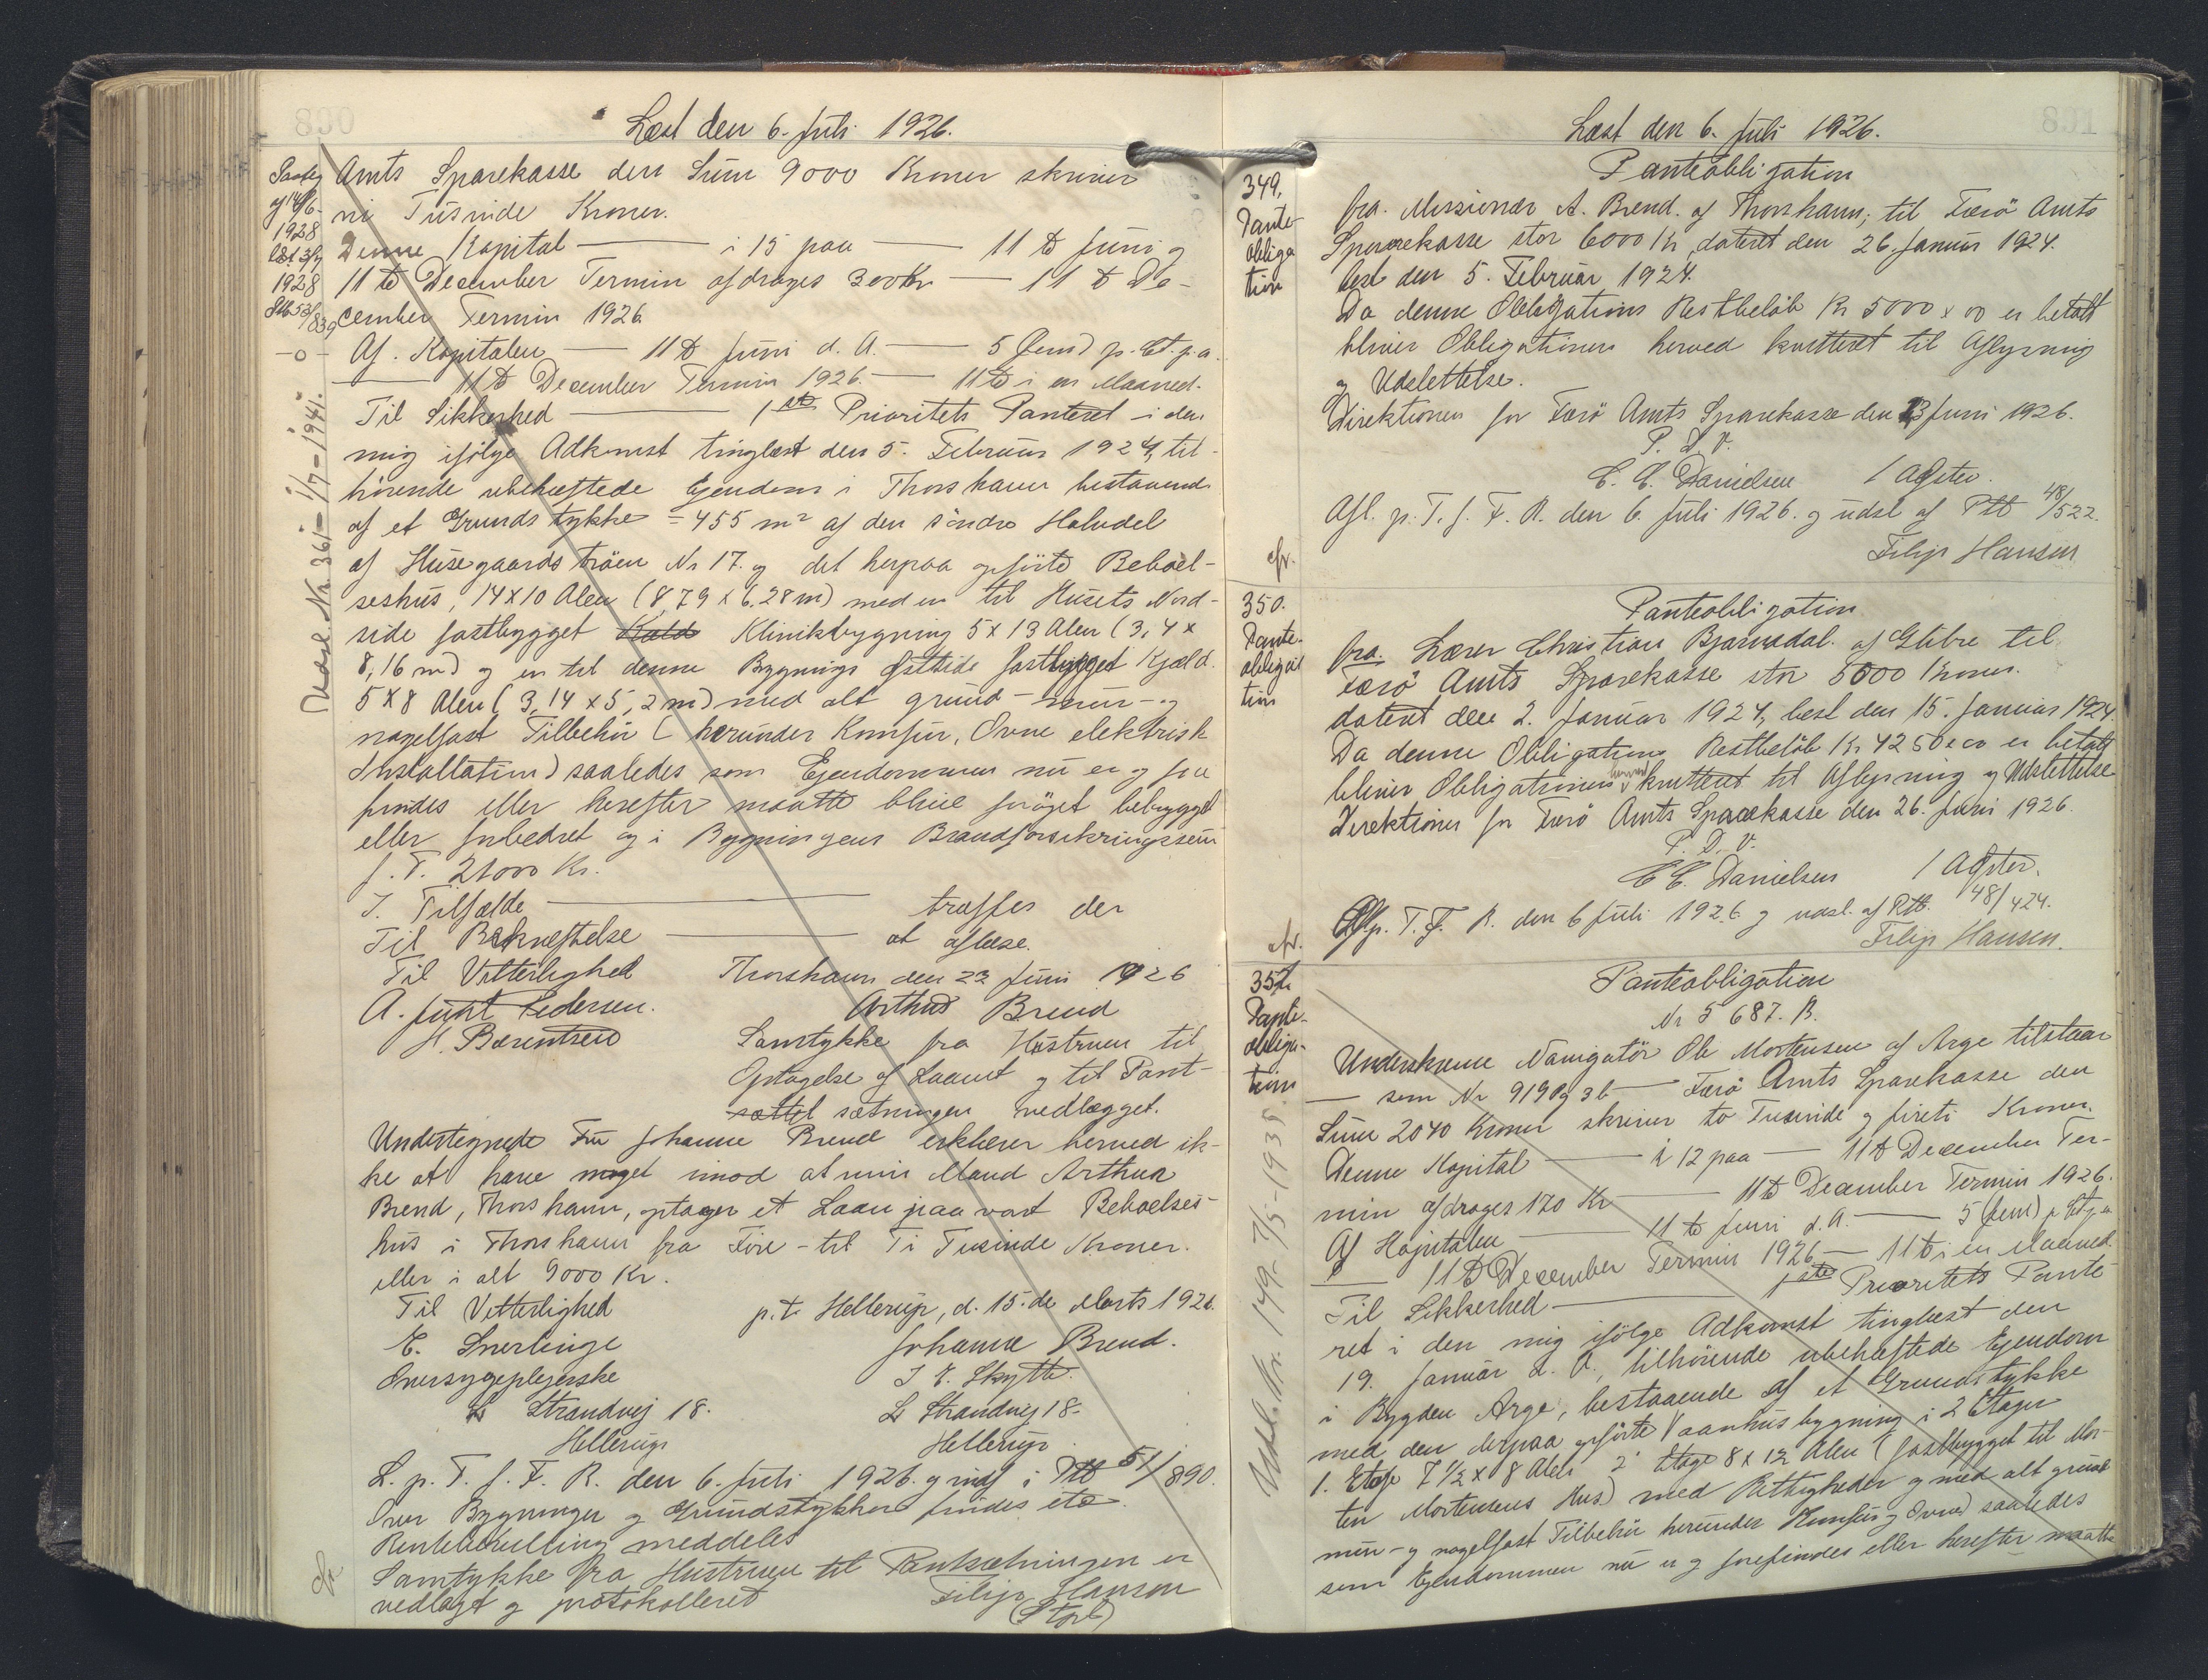 890
Læst den 6. Juli 1926.
Amts Sparekasse den Sum 9000 Kroner skriver
ni Tusinde Kroner.
Denne Kapital — i 15 paa — 11 te Juni og
11 te December Termin afdrages 300 Kr — 11 te De-
cember Termin 1926
Af Kapitalen — 11 te Juni d. A. — 5 (fem) p. Ct. p. a.
— 11 te December Termin 1926 — 11 te i en Maaned.
Til Sikkerhed — 1ste Prioritets Panteret i den
mig ifölge Adkomst tinglæst den 5. Februar 1924, til-
hörende ubehæftede Ejendom i Thorshavn bestaaende
af et Grundstykke = 455 m² af den söndre Halvdel
af Husegaards tröen Nr 17. og det herpaa opförte Beboel-
seshus, 14 x 10 Alen (8,79 x 6.28 m) med en til Husets Nord-
side fastbygget Kæld Klinikbygning 5 x 13 Alen (3,14 x
8,16 m) og en til denne Bygnings Östside fastbygget Kjæld.
5 x 8 Alen (3,14 x 5,2 m) med alt grund- mur- og
nagelfast Tilbehör (herunder Komfur, Ovne elektrisk
Installation) saaledes som Ejendommen nu er og fore
findes eller herefter maatte blive foröget bebygget
eller forbedret og i Bygningens Brandforsikringssum
f. T. 21000 Kr.
I Tilfælde — træffes der
Til Bekræftelse — at aflæse.
Til Vitterlighed Thorshavn den 23 Juni 1926
A. Juhl Pedersen. Arthur Brend
H. Bærentsen Samtykke fra Hustruen til
Optagelse af Laanet og til Pant-
sættel sætningen vedlægget.
Undertegnede Fru Johanne Brend erklærer herved ik-
ke at have noget imod at min Mand Arthur
Brend, Thorshavn, optager et Laan paa vort Beboelses-
hus i Thorshavn fra Fire - til Ti Tusinde Kroner.
eller i alt 9000 Kr.
Til Vitterlighed p. t. Hellerup, d. 15. de Marts 1926.
E. Snerlinge Johanne Brend.
Oversygeplejerske I E. Skytte.
Strandvej 18. Strandvej 18.
Hellerup Hellerup
L. p. T. f. F. R. den 6. Juli 1926. og indf i Ptb 51/890.
Over Bygninger og Grundstykker findes
meddeles
Samtykke fra Hustruen til Pantsætningen er
vedlagt og protokolleret Filip Hansen
1928
1928
Udsl. Nr. 361 - 1/7 - 1941.
891
Læst den 6. Juli 1926.
349.
Pante-
obliga
tion
Panteobligation
fra Missionær A. Brend. af Thorshavn, til Færö Amts
Sparekasse stor 6000 Kr dateret den 26. Januar 1924.
læst den 5. Februar 1924.
Da denne Obligations Restbelöb Kr 5000 x 00 er betalt
bliver Obligationen herved kvitteret til Aflysning
og Udslettelse.
Direktionen for Færö Amts Sparekasse den 23 Juni 1926.
P. D. V.
C. C. Danielsen
Afl. p. T. f. F. R. den 6. Juli 1926. og udsl af Ptb 48/522.
Filip Hansen
350.
Pante-
obliga
tion
Panteobligation
fra Lærer Christian Bjarnadal. af Glibre til
Færö Amts Sparekasse stor 5000 Kroner.
dateret den 2. Januar 1924, læst den 15. Januar 1924.
Da denne Obligations Restbelöb Kr 4250 x 00 er betalt
bliver Obligationen herved kvitteret til Aflysning og Udslettelse
Direktionen for Færö Amts Sparekasse den 26. Juni 1926.
P. D. V.
C C. Danielsen
Afl p. T. F. R. den 6 Juli 1926 og udsl. af Ptb. 48/424.
Filip Hansen.
351.
Pante-
obliga-
tion
Panteobligation
Nr 5687. B.
Underskrevne Navigatör Ole Mortensen af Arge tilstaar
— som Nr 919 Pg 36 — Færö Amts Sparekasse den
Sum 2040 Kroner skriver to Tusinde og fireti Kroner.
Denne Kapital — i 12 paa — 11 te December Ter-
min afdrages 170 Kr — 11 te December Termin 1926.
Af Kapitalen — 11 te Juni d. A. — 5 (fem) p Ct p a
— 11 te December Termin 1926 — 11 te i en Maaned.
Til Sikkerhed — 1ste Prioritets Pante-
ret i den mig ifölge Adkomst tinglæst den
19. Januar d. A., tilhörende ubehæftede Ejendom
i Bygden Arge, bestaaende af et Grundstykke
med den derpaa opförte Vaanhusbygning i 2 Etager
1. Etage 7 1/2 x 8 Alen 2 Etage 8 x 12 Alen (fastbygget til Mor-
ten Mortensens Hus) med Rettigheder og med alt grund
mur- og nagelfast Tilbehör herunder Komfur og Ovne) saaledes
som Ejendommen nu er og forefindes eller herefter maatte
Udsl. Nr. 149 - 7/5 - 1935.